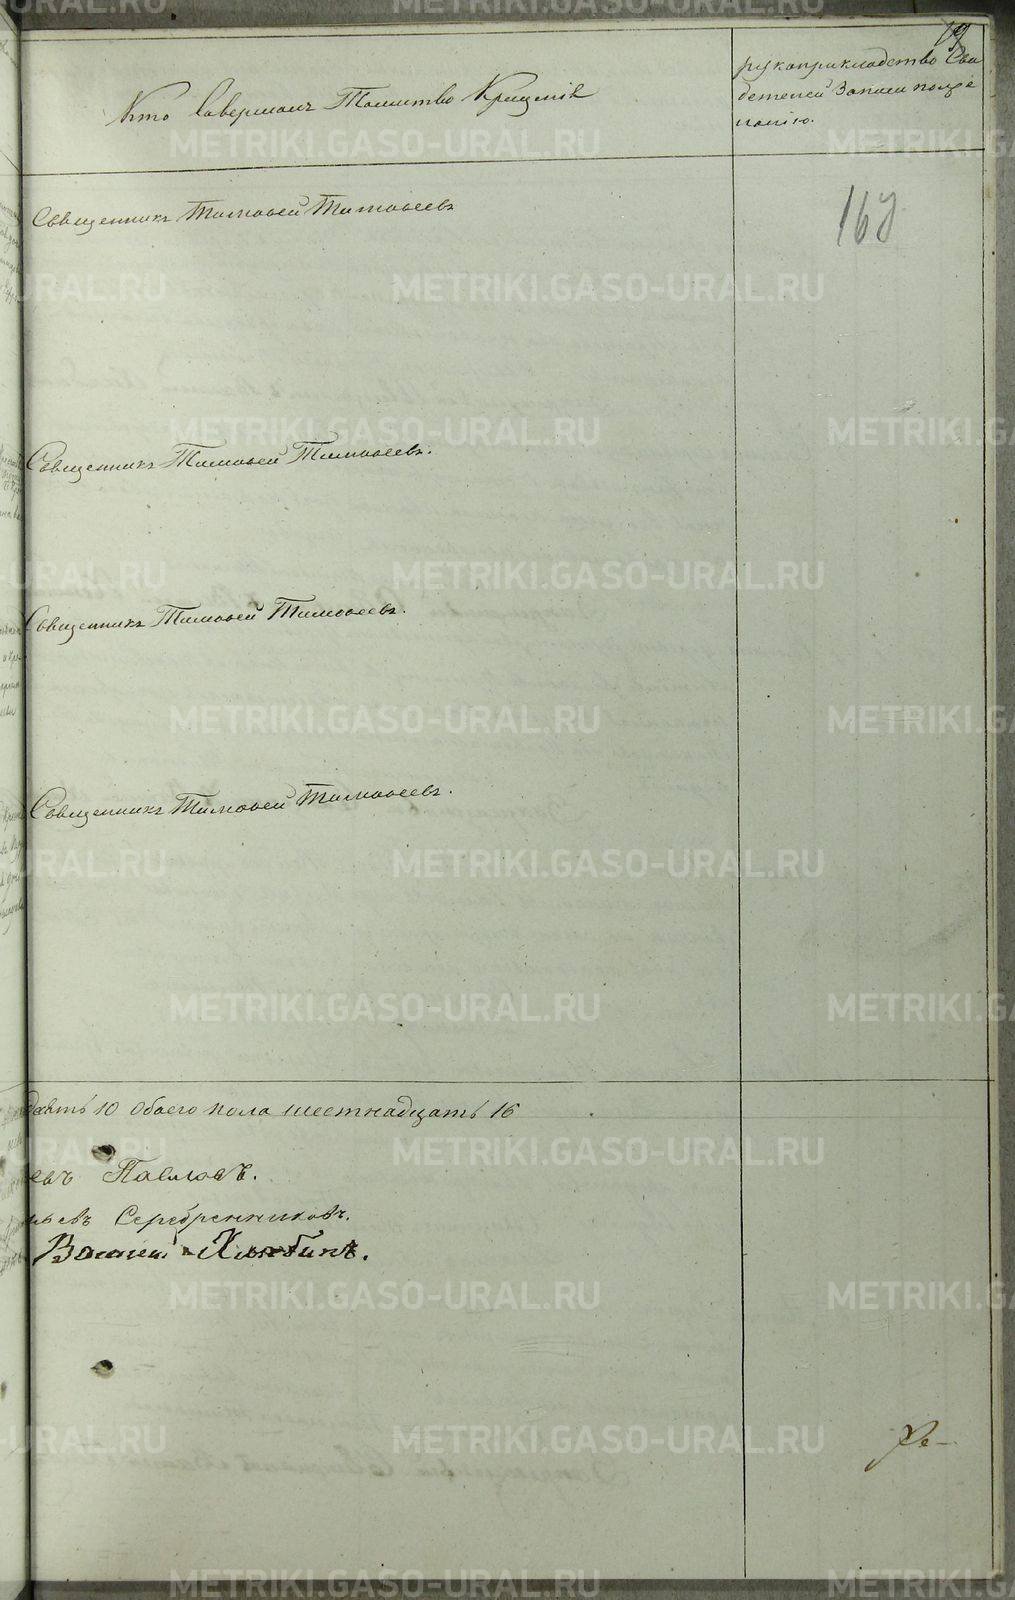 19
Кто Совершалъ Таинство Крещенія
рукоприкладство Сви
детелей Записи по же
ланію.
163
Священникъ Тимоѳей Тимоѳеевъ
Священникъ Тимоѳей Тимоѳеевъ.
Священникъ Тимоѳей Тимоѳеевъ.
Священникъ Тимоѳей Тимоѳеевъ.
10 обоего пола шестнадцать 16
евъ Павловъ.
ьевъ Серебренниковъ.
Хлябинъ.
METRIKI.GASO-URAL.RU